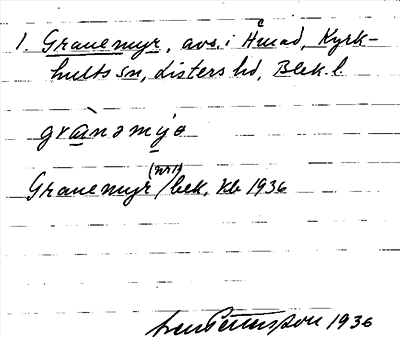 1. Granemyr, avs. i Hunad, Kyrk-
hults sn, Listers hd, Blek. l.
grànəmyə
Granemyr (nr 1) / bek, Kb 1936
1936